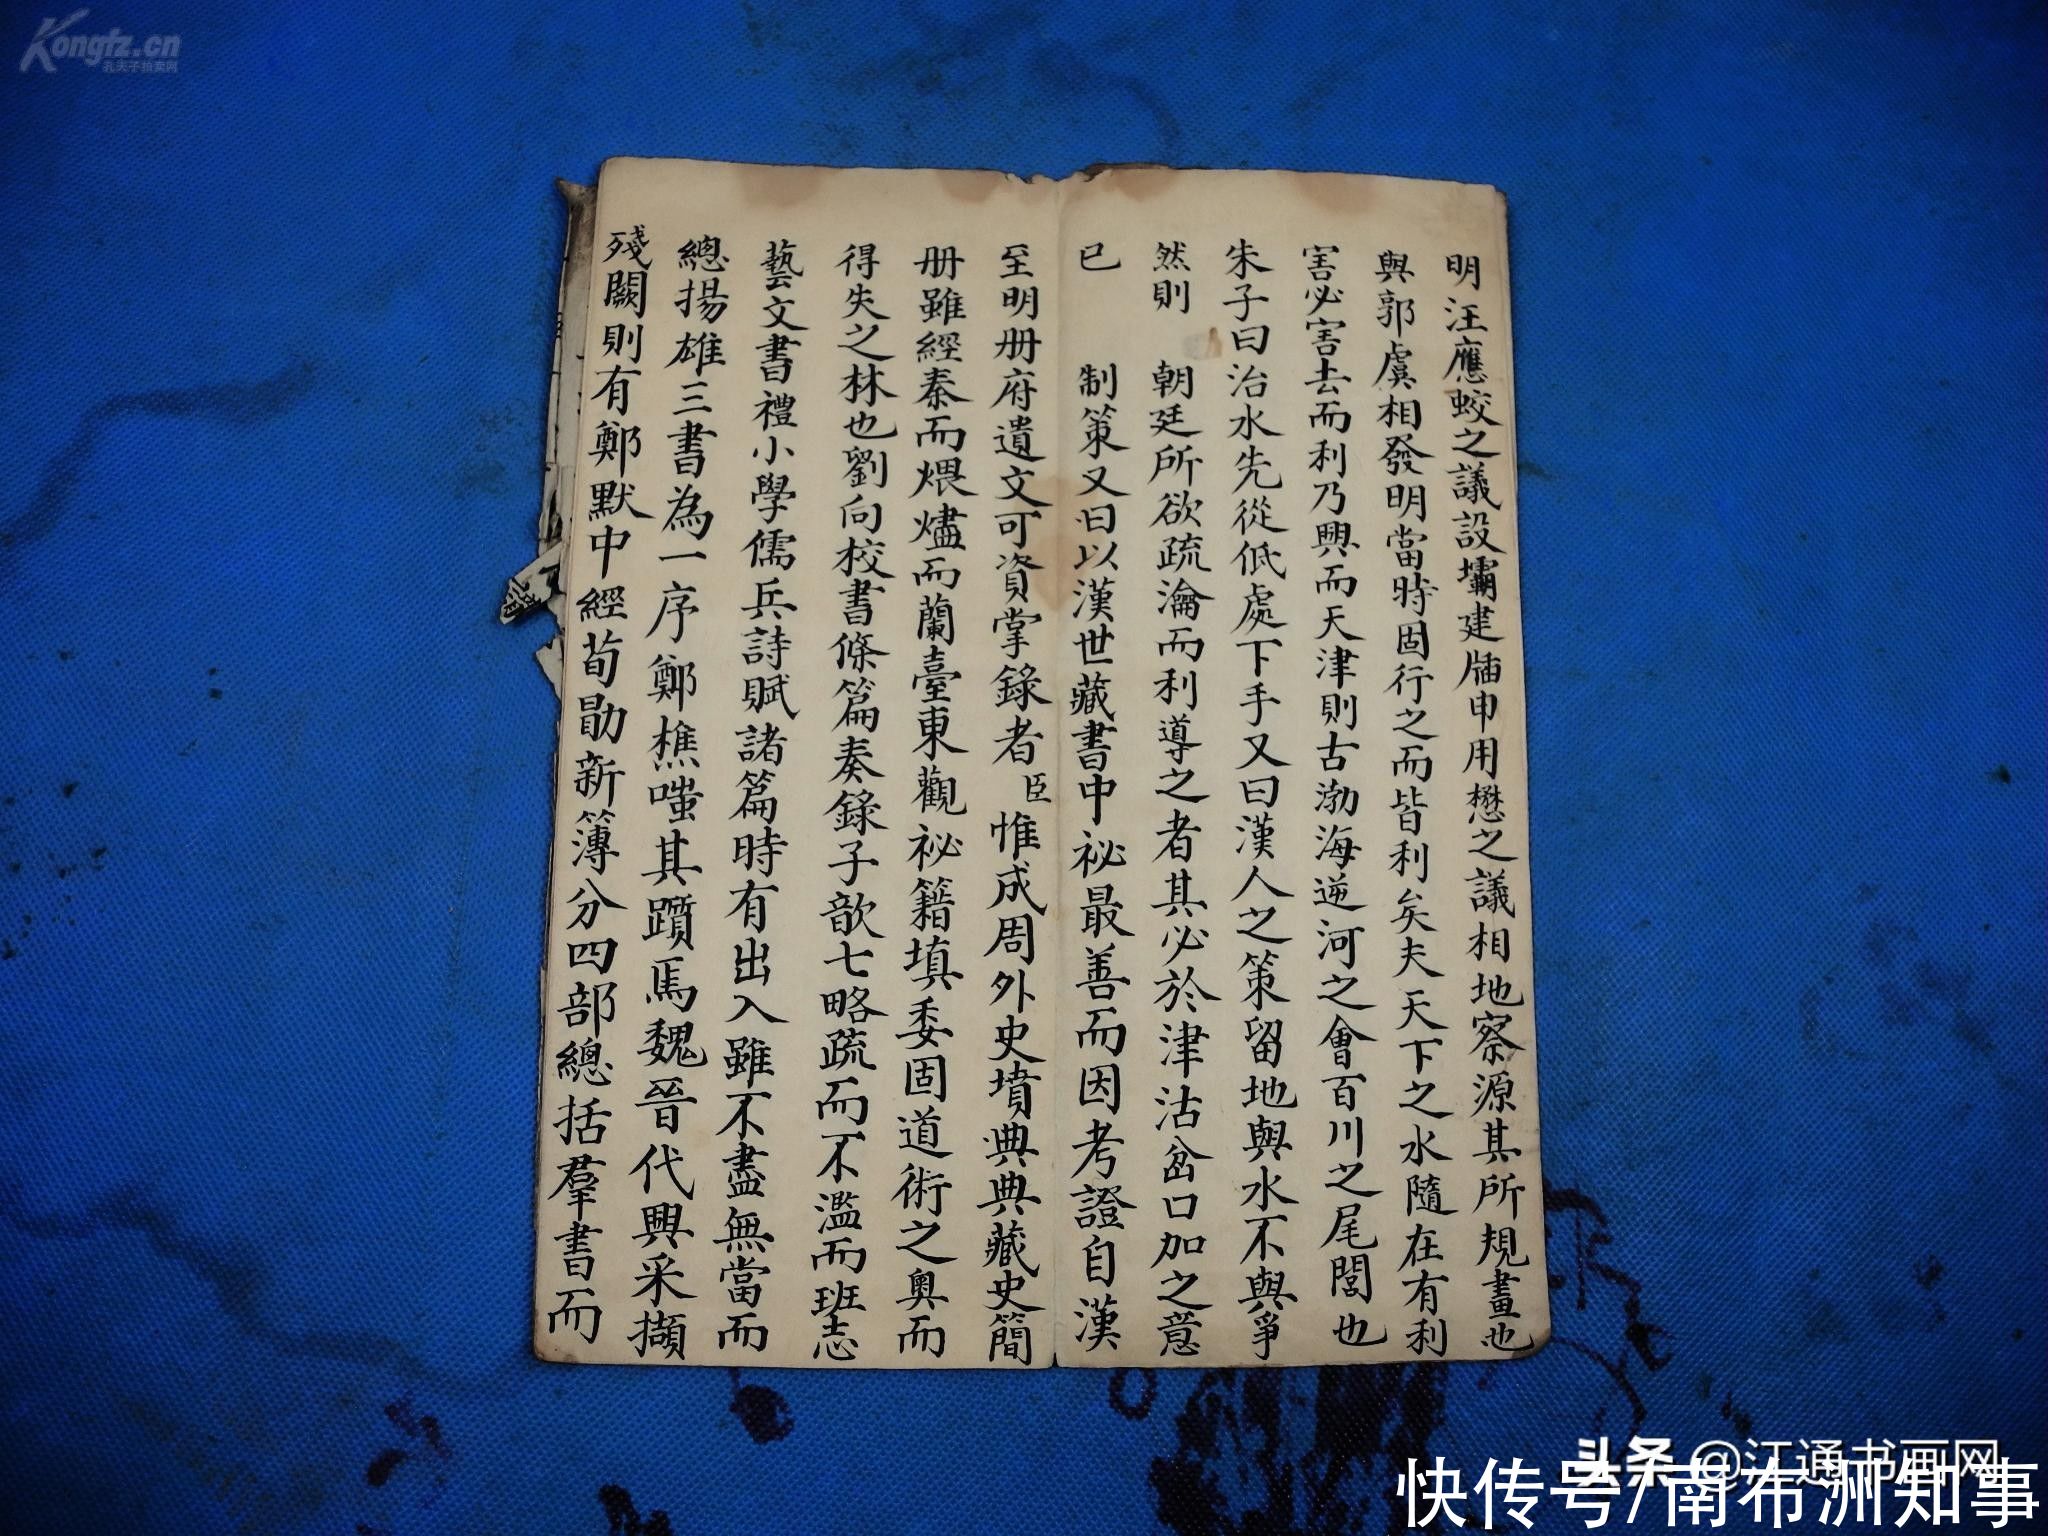 明汪應蛟之議設壩建牐申用懋之議相地察源其所規畫也
與郭虞相發明當時固行之而皆利矣夫天下之水隨在有利
害必害去而利乃興而天津則古渤海逆河之會百川之尾閭也
朱子曰治水先從低處下手又曰漢人之策留地與水不與爭
然則 朝廷所欲疏瀹而利導之者其必於津沽岔口加之意
已 制策又曰以漢世藏書中祕最善而因考證自漢
至明册府遺文可資掌錄者臣惟成周外史墳典典藏史簡
册雖經秦而煨燼而蘭臺東觀祕籍填委固道術之奧而
得失之林也劉向校書條篇奏錄子歆七略疏而不濫而班志
藝文書禮小學儒兵詩賦諸篇時有出入雖不盡無當而
總揚雄三書為一序鄭樵嗤其躓焉魏晉代興采擷
殘闕則有鄭默中經荀勖新簿分四部總括羣書而
Kongfz.cn
孔夫子拍卖网
头条 @江通书画网
快传号/南布洲知事